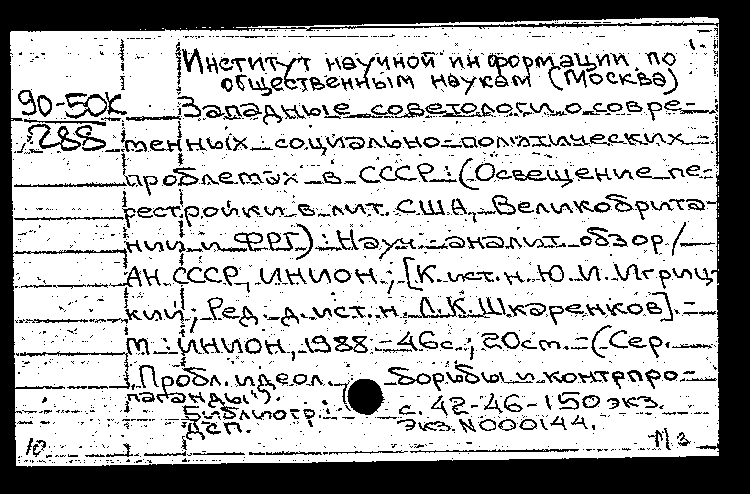 1.
Институт научной информации по
общественным наукам (Москва)
90-50К Западные советологи о совре-
288 менных социально-политических
проблемах в СССР: (Освещение пе-
рестройки в лит. США, Великобрита-
нии и ФРГ): Науч.-аналит. обзор/
АН СССР, ИНИОН.; [К.ист.н. Ю.И. Игриц-
кий; Ред. д.ист.н. Л.К. Шкаренков]. -
М: ИНИОН, 1988. - 46с.; 20см. - (Сер.
"Пробл. идеол. борьбы и контрпро-
паганды").
Библиогр.: с. 42-46 - 150 экз.
ДСП. Экз.N000144.
10